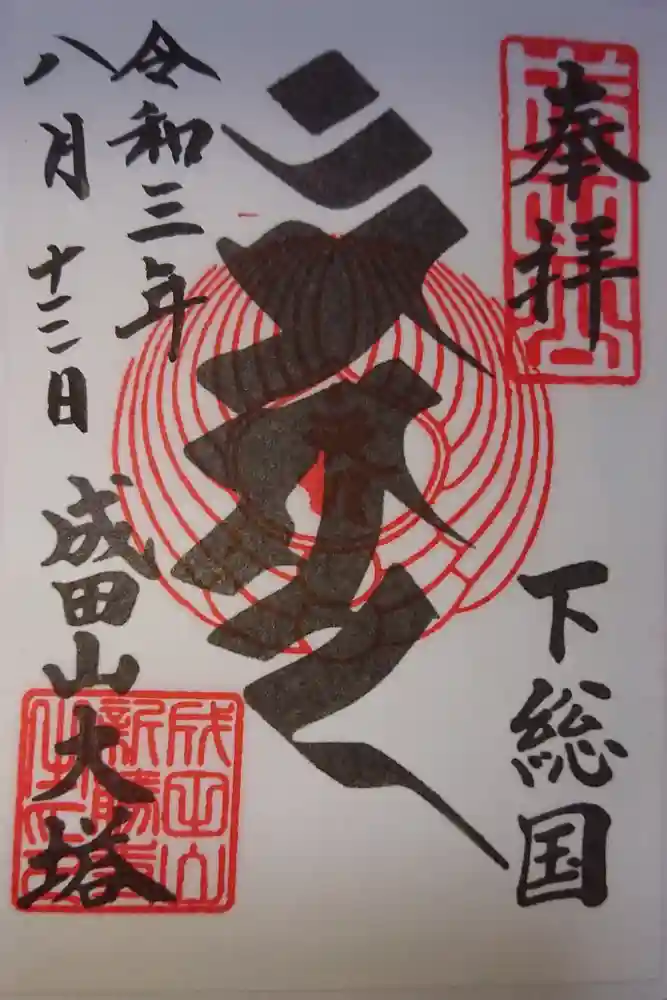 奉拝
下総国
令和三年
八月十二日
成田山大塔
成田山
新勝寺